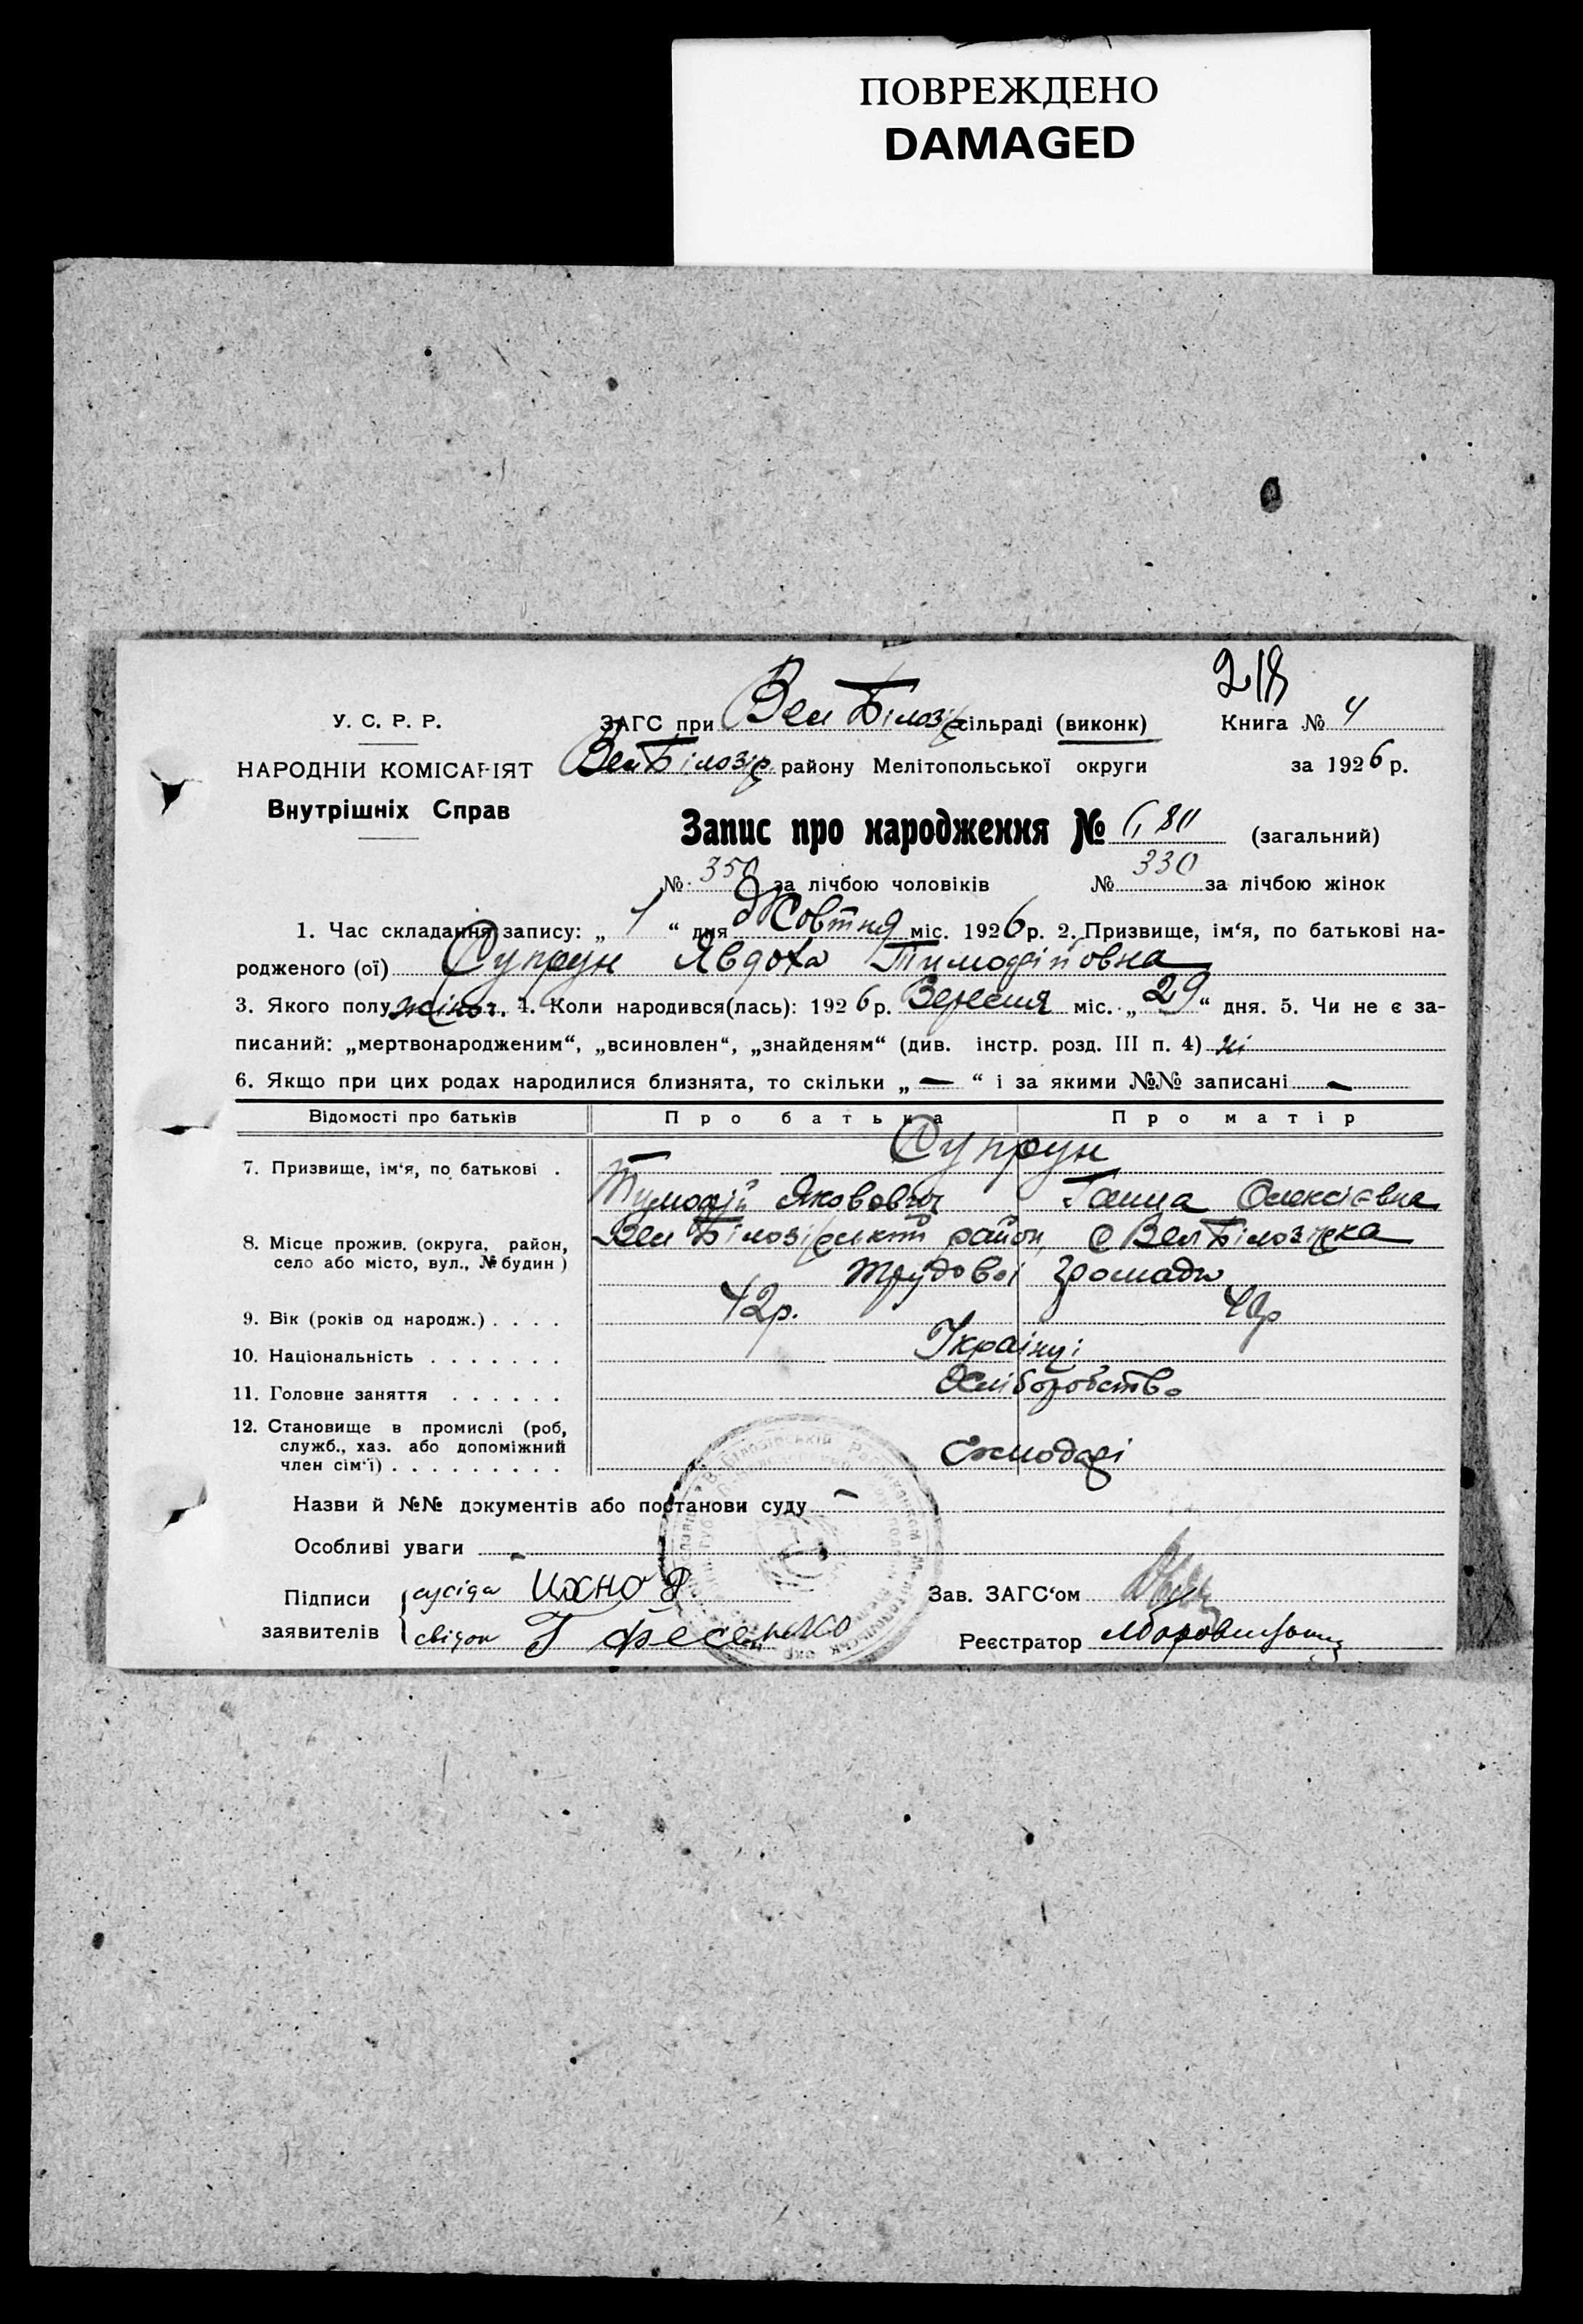 ПОВРЕЖДЕНО
DAMAGED
218
У. С. Р. Р.
ЗАГС при Вел Білозір сільраді (виконк)
Книга № 4
НАРОДНІЙ КОМІСАРІЯТ
Вел Білозір. району Мелітопольської округи
за 1926 р.
Внутрішніх Справ
Запис про народження № 680 (загальний)
№ 350 за лічбою чоловіків № 330 за лічбою жінок
1. Час складання запису: „ 1 “ дня Жовтня міс. 1926 р. 2. Призвище, ім‘я, по батькові на-
родженого (ої) Супрун Явдоха Тимофійовна
3. Якого полу жіноч. 4. Коли народився(лась): 1926 р. Вересня міс. „ 29 “ дня. 5. Чи не є за-
писаний: „мертвонародженим“, „всиновлен“, „знайденям“ (див. інстр. розд. III п. 4) ні
6. Якщо при цих родах народилися близнята, то скільки „ — “ і за якими №№ записані —
Відомості про батьків Про батька Про матір
Супрун
7. Призвище, ім‘я, по батькові .
Тимофій Яковович Ганна Олексієвна
8. Місце прожив. (округа, район,
село або місто, вул., № будин)
Вел Білозірський район, с Вел Білозірка
Трудової громади
9. Вік (років од народж.) . . . . 42р. 40р
10. Національність . . . . . . . Українці
11. Головне заняття . . . . . . Хліборобство
12. Становище в промислі (роб,
служб., хаз. або допоміжний
член сім‘ї) . . . . . . . . .
Назви й №№ документів або постанови суду –
Особливі уваги –
Підписи
заявителів
сусіда Шохно
свідок Г Фесенко
Зав. ЗАГС‘ом
Реєстратор